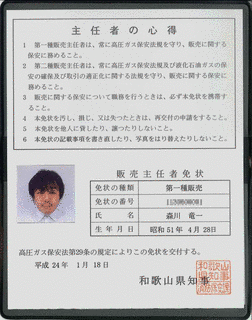 主任者の心得
1 第一種販売主任者は、常に高圧ガス保安法規を守り、販売に関する
保安に務めること。
2 第二種販売主任者は、常に高圧ガス保安法規及び液化石油ガスの保
安の確保及び取引の適正化に関する法規を守り、販売に関する保安に
務めること。
3 販売に関する保安について職務を行うときは、必ず本免状を携帯す
ること。
4 本免状を汚し、損じ、又は失ったときは、再交付の申請をすること。
5 本免状を他人に貸したり、譲つたりしないこと。
6 本免状の記載事項を書き直したり、写真をはり替えたりしないこと。
販売主任者免状
免状の種類 第一種販売
免状の番号
氏名 森川 竜一
生年月日 昭和51年 4月28日
高圧ガス保安法第29条の規定によりこの免状を交付する。
平成24年 1月18日
和歌山県知事